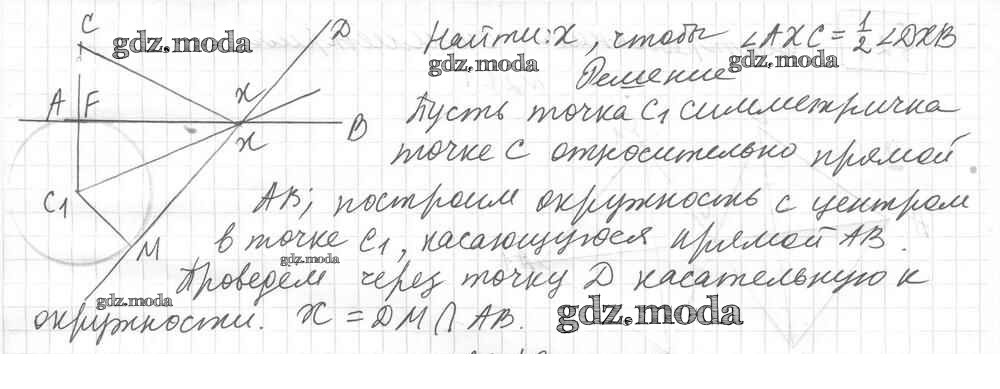 C
D
Найти: X, чтобы ∠AXC = 1/2 ∠DXB
gdz.moda
gdz.moda
gdz.moda
Решение
A F
X
B
X
Пусть точка C1 симметрична
точке C относительно прямой
C1
AB; построим окружность с центром
M
в точке C1, касающуюся прямой AB.
gdz.moda
Проведем через точку D касательную к
gdz.moda
окружности. X = DM ∩ AB.
gdz.moda